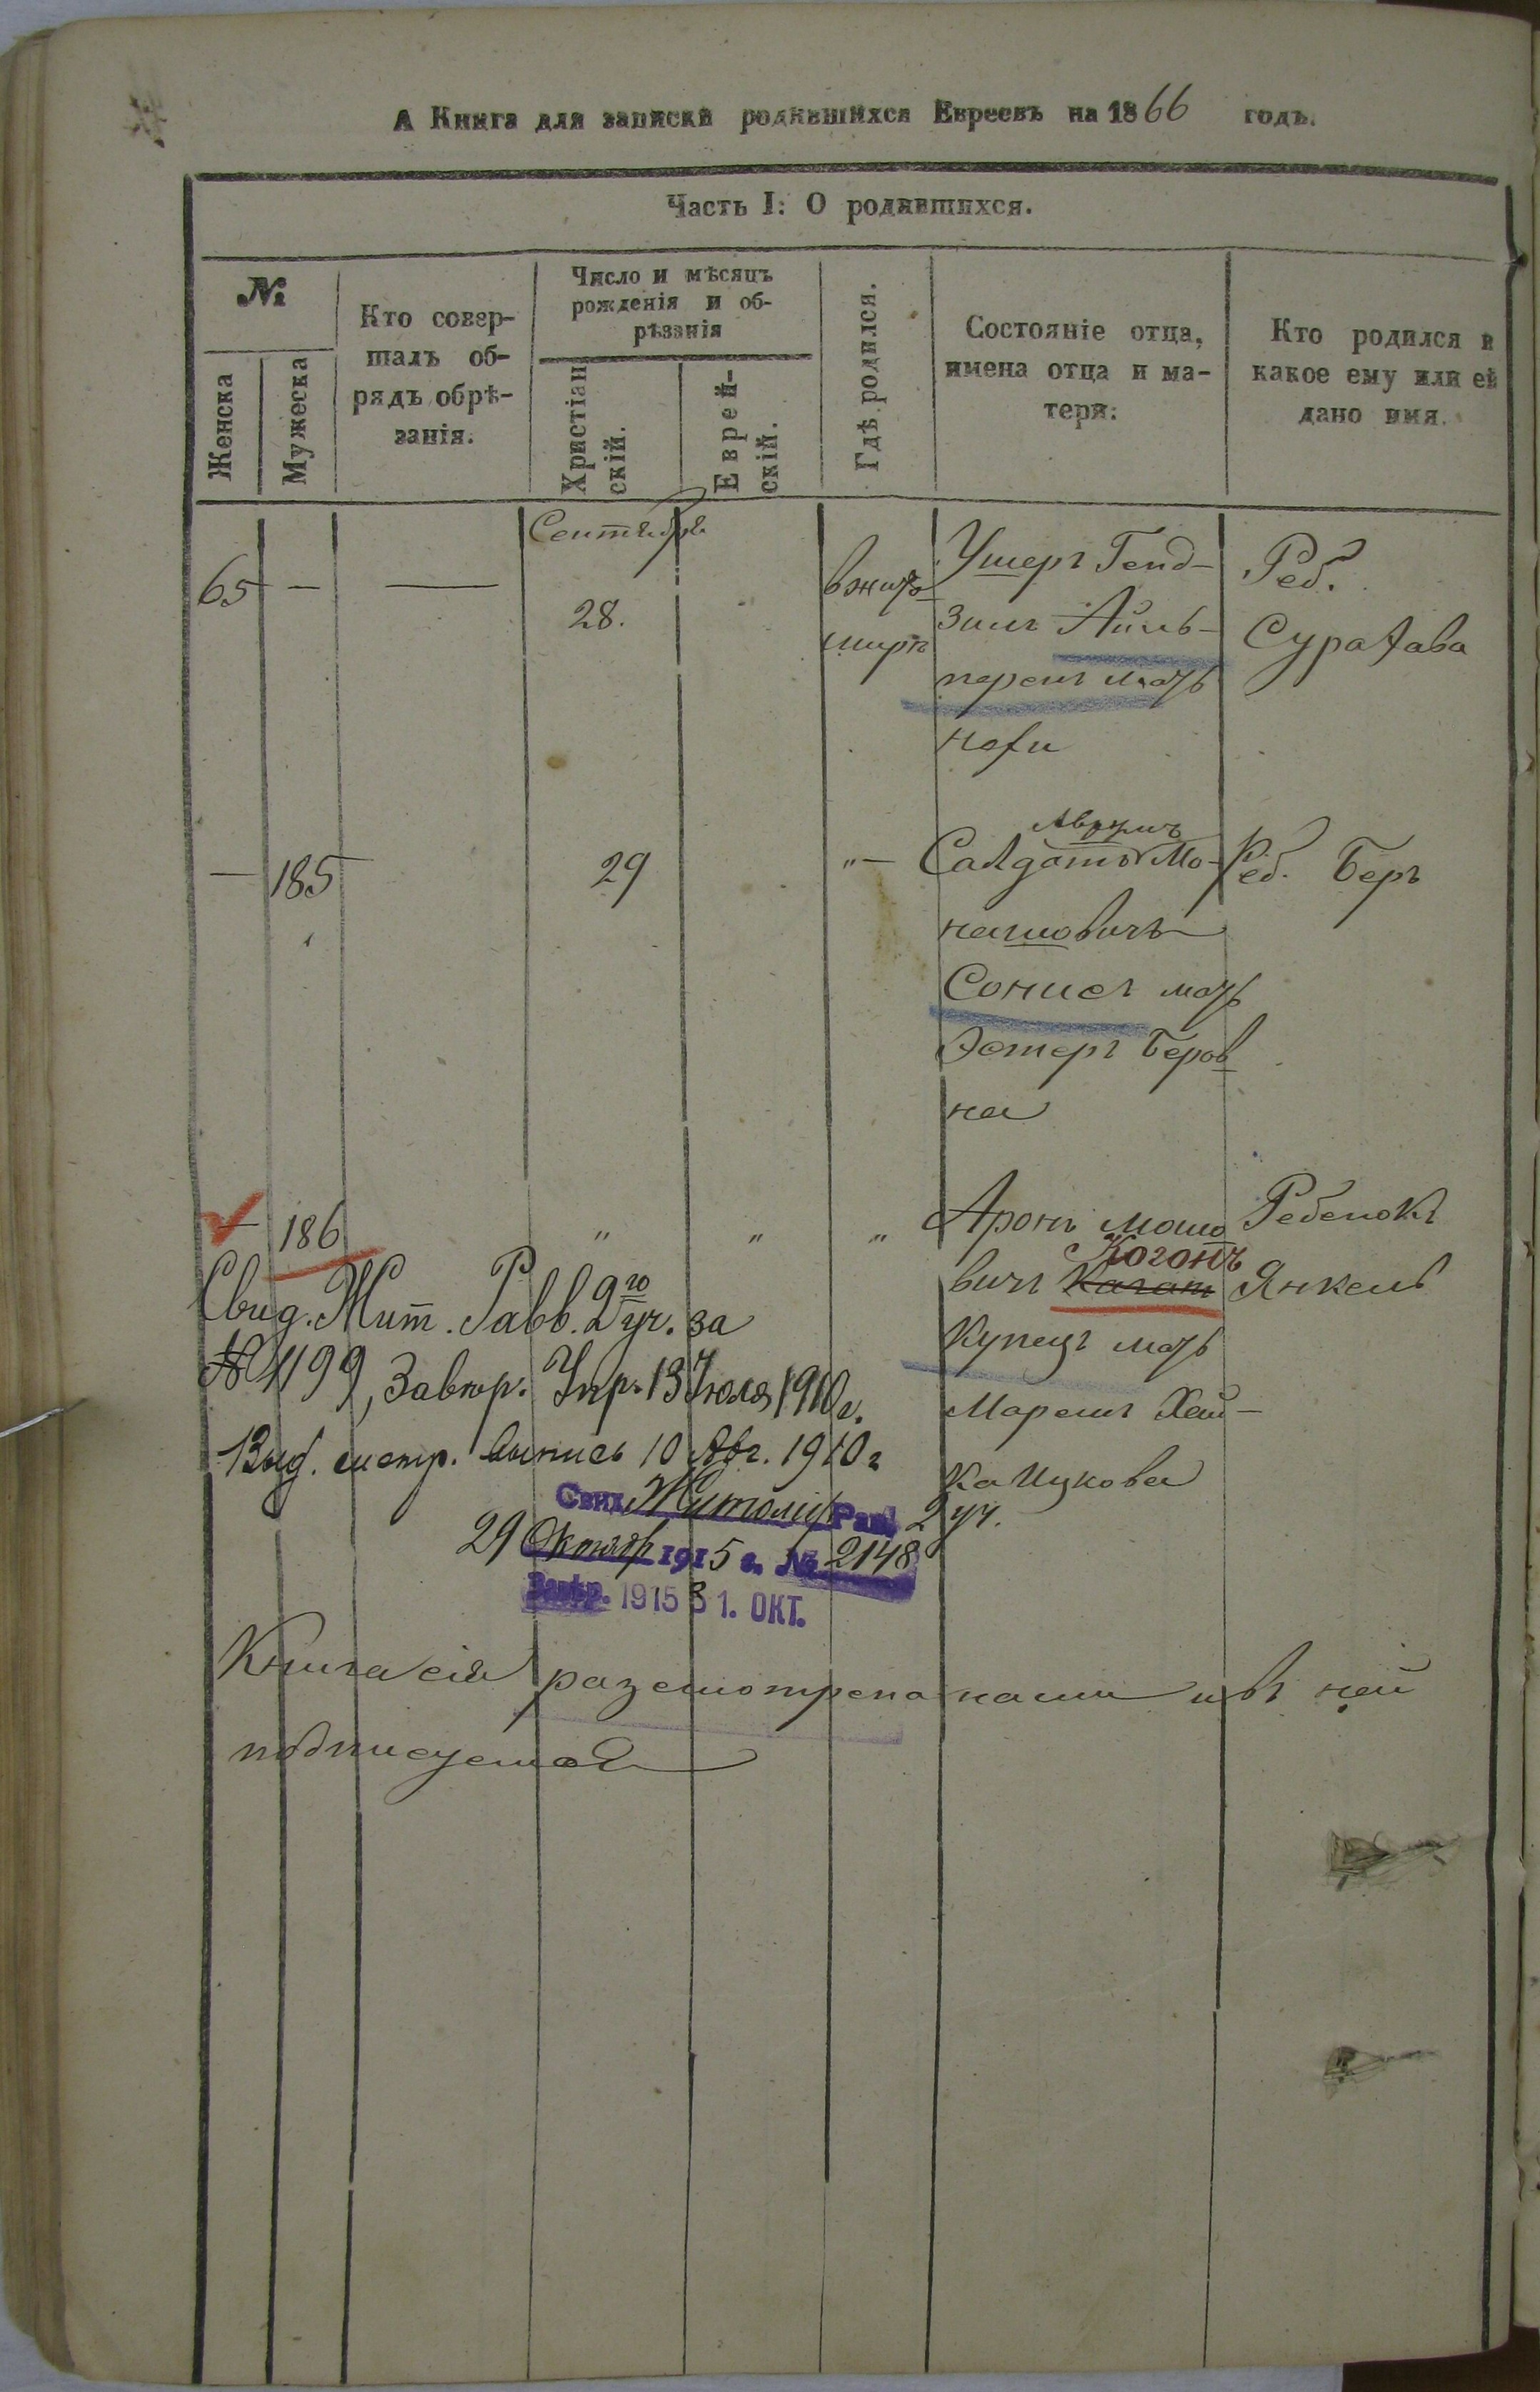 А Книга для записки родившихся Евреевъ на 1866 годъ.
Часть I: О родившихся.
№
Женска
Мужеска
Кто совер-
шалъ об-
рядъ обрѣ-
занія.
Число и мѣсяцъ
рожденія и об-
рѣзанія
Христіан
скій.
Еврей-
скій.
Гдѣ родился.
Состояніе отца,
имена отца и ма-
тери.
Кто родился и
какое ему или ей
дано имя.
Сентября
65 — —
28.
в жито
миръ
Ушеръ Генд-
зилъ Айль-
перенъ мать
Реб.
Сура Хава
— 185
29
"—
Аврумъ
Салдатъ Мо-
нашовичъ
Сонисъ мать
Эстеръ Беров
на
Реб. Беръ
— 186
" " "
Аронъ Мошо
вичъ Коганъ
Купецъ мать
Хай-
ка Ицкова
Ребенокъ
Янкель
Свид. Жит. Равв. 2го уч. за
№ 1199, Завѣр. Упр. 13 Іюля 1910 г.
Выд. метр. выпись 10 Авг. 1910 г
Свид. Житомир Рав. 2 уч.
29 Октябр 1915 г. № 2148
Завѣр. 1915 31. ОКТ.
Книга сія разсмотрена нами и въ ней